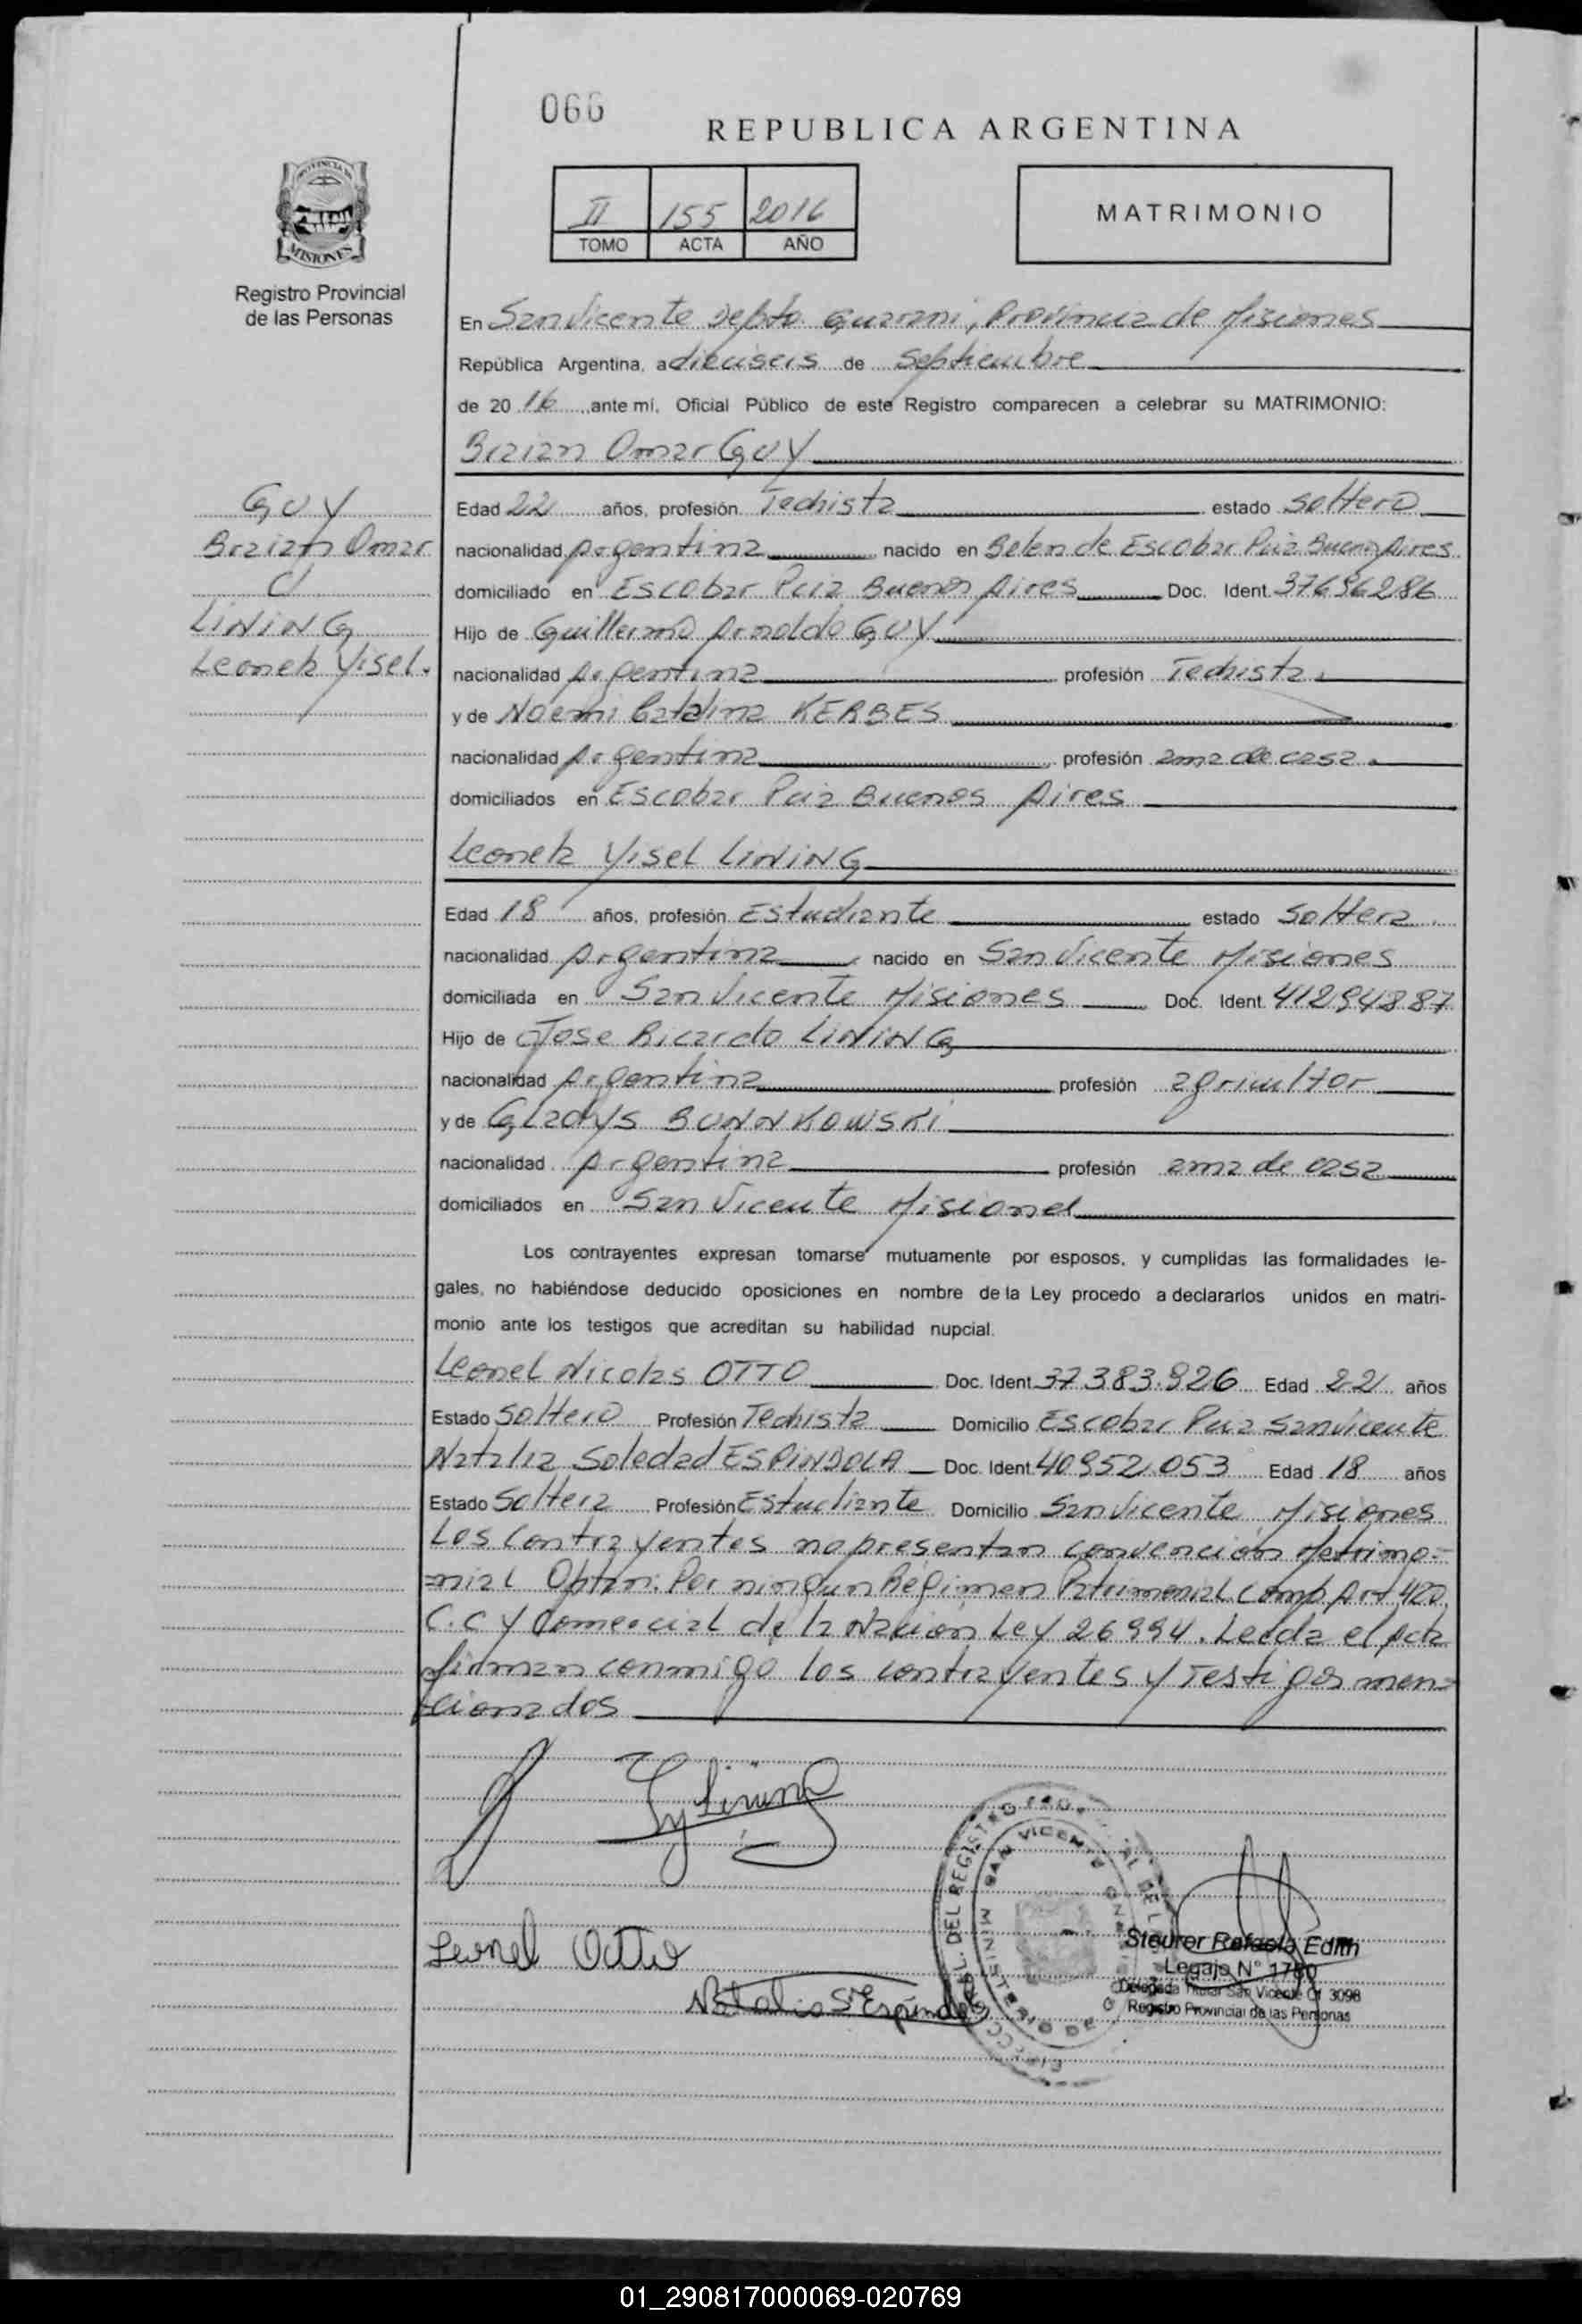 066
REPUBLICA ARGENTINA
II 155 2016
TOMO ACTA AÑO
MATRIMONIO
PROVINCIA DE
MISIONES
Registro Provincial
de las Personas
En San Vicente Depto Guarani, Provincia de Misiones
República Argentina, a dieciseis de Septiembre
de 2016, ante mí, Oficial Público de este Registro comparecen a celebrar su MATRIMONIO:
Braian Omar GUY
GUY
Braian Omar
c/
LINING
Leonela Yisel.
Edad 22 años, profesión Techista estado soltero
nacionalidad Argentina nacido en Belen de Escobar Pcia Buenos Aires
domiciliado en Escobar Pcia Buenos Aires Doc. Ident. 37696286
Hijo de Guillermo Arnoldo GUY
nacionalidad Argentina profesión Techista
y de Noemi Catalina KERBES
nacionalidad Argentina profesión ama de casa
domiciliados en Escobar Pcia Buenos Aires
Leonela Yisel LINING
Edad 18 años, profesión Estudiante estado Soltera
nacionalidad Argentina nacido en San Vicente Misiones
domiciliada en San Vicente Misiones Doc. Ident. 41294887
Hijo de Jose Ricardo LINING
nacionalidad Argentina profesión agricultor
y de Gladys BUNNKOWSKI
nacionalidad Argentina profesión ama de casa
domiciliados en San Vicente Misiones
Los contrayentes expresan tomarse mutuamente por esposos, y cumplidas las formalidades le-
gales, no habiéndose deducido oposiciones en nombre de la Ley procedo a declararlos unidos en matri-
monio ante los testigos que acreditan su habilidad nupcial.
Leonel Nicolas OTTO Doc. Ident. 37.383.926 Edad 22 años
Estado Soltero Profesión Techista Domicilio Escobar Pcia San Vicente
Natalia Soledad ESPINDOLA Doc. Ident. 40952.053 Edad 18 años
Estado Soltera Profesión Estudiante Domicilio San Vicente Misiones
Los contrayentes no presentan convencion Matrimo-
=nial Optan: Por ningun Régimen Patrimonial Comp Art 420
C.C y Comercial de la Nacion Ley 26994. Leida el Acta
firman conmigo los contrayentes y Testigos men=
cionados
Ly Lining
Leonel Otto
Natalia S Espindola
DEL REGISTRO
SAN VICENTE
MINISTERIO DE
Steurer Rafaela Edith
Legajo N° 1780
Delegada Titular San Vicente Of 3098
Registro Provincial de las Personas
01_290817000069-020769